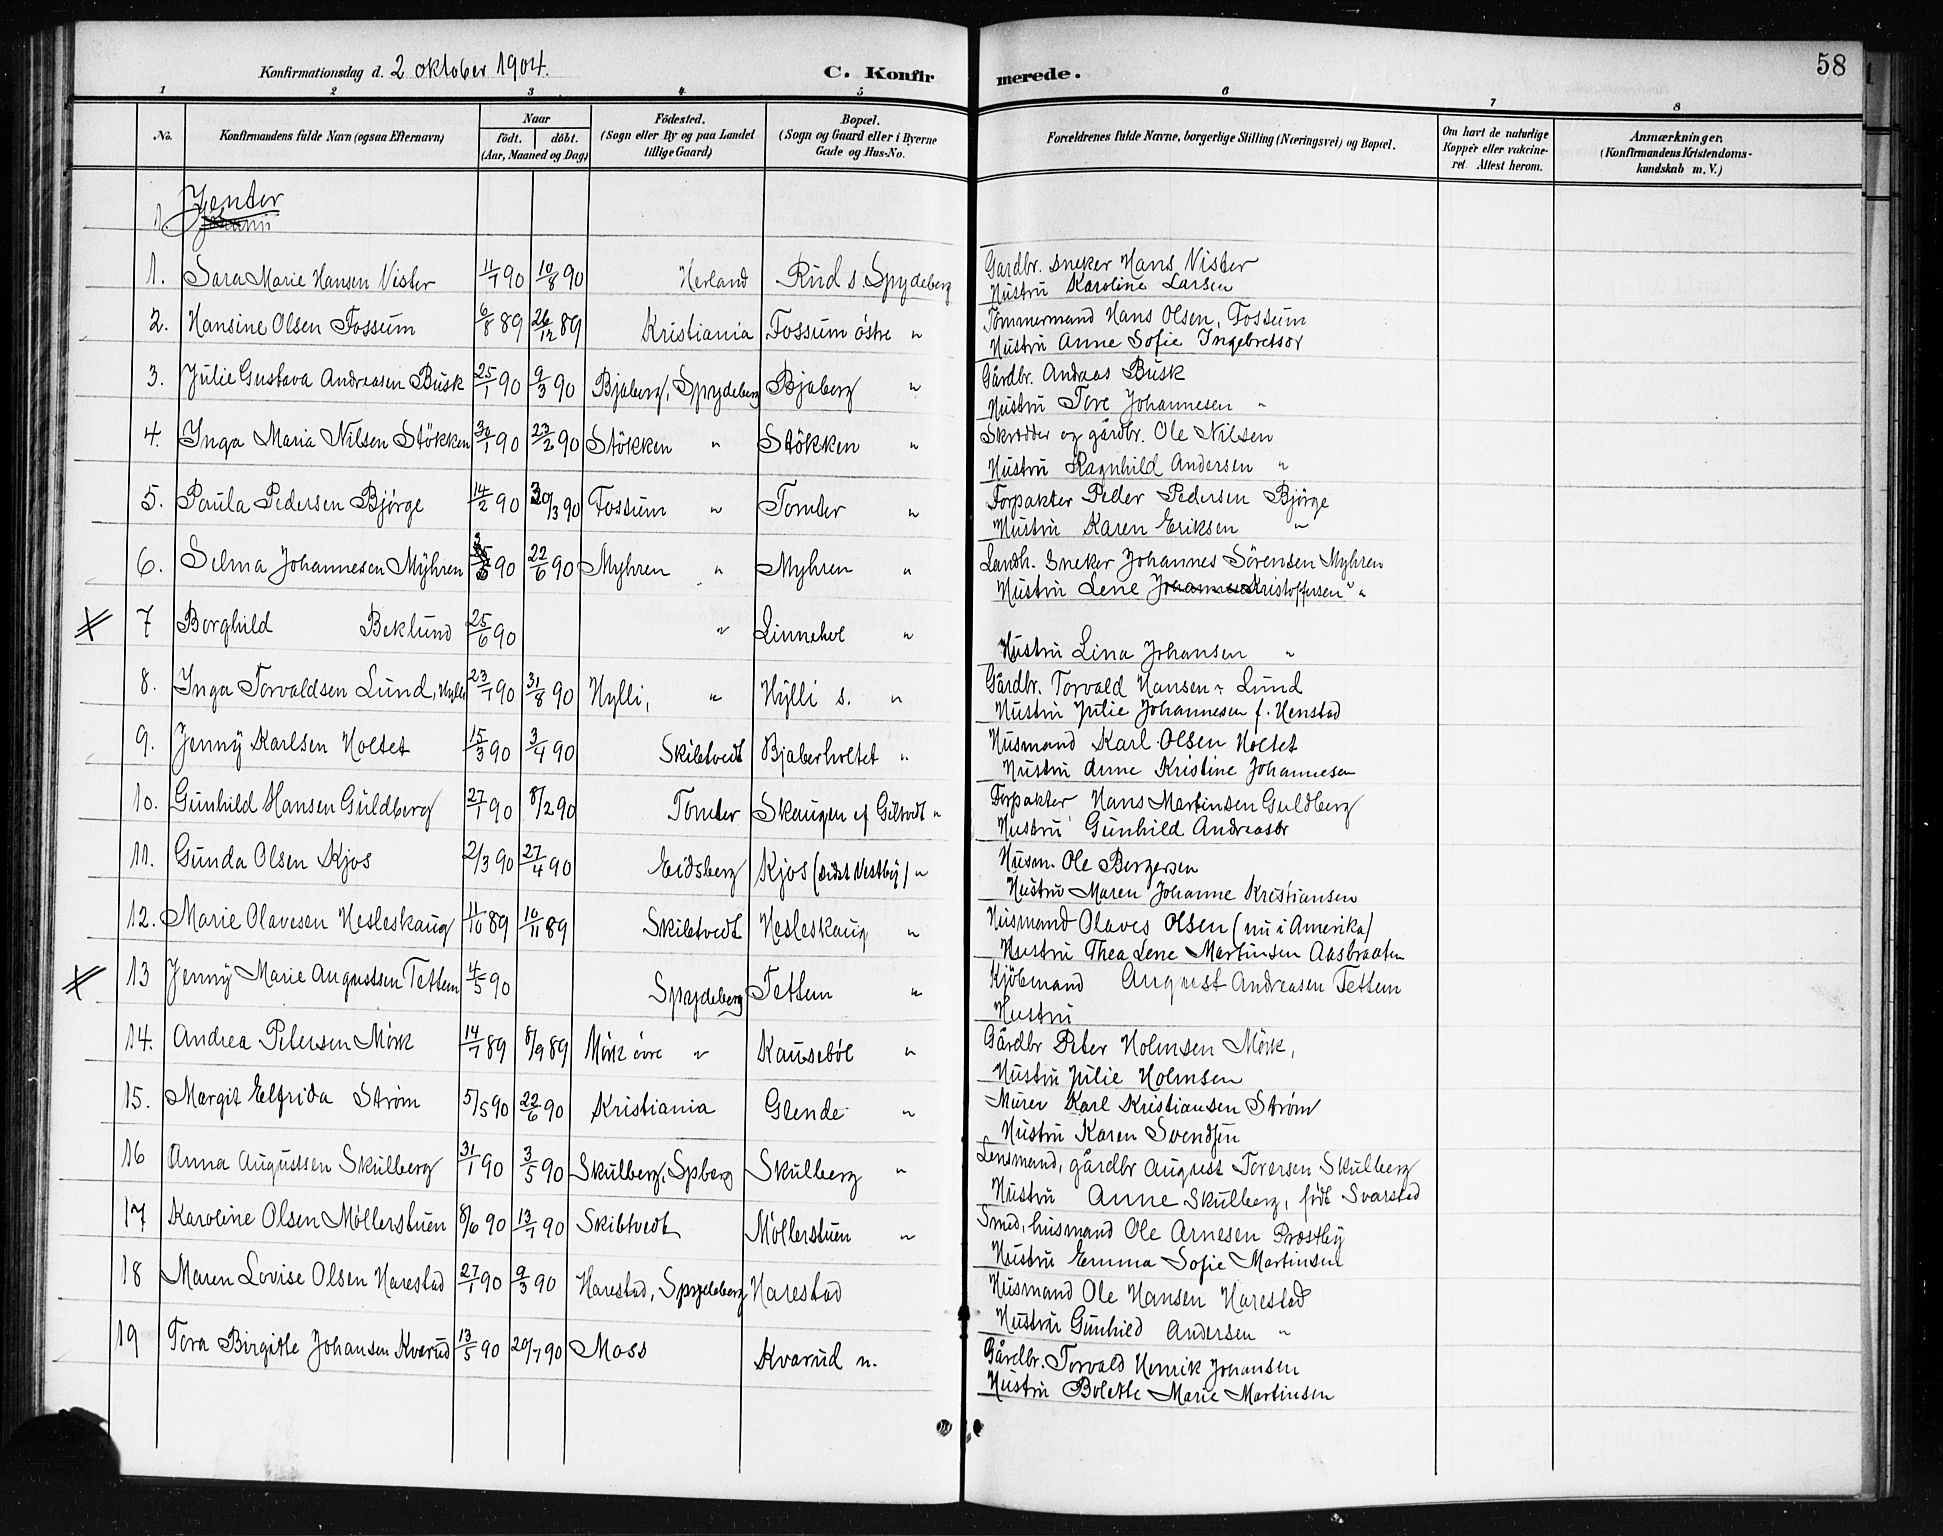 58
Konfirmationsdag d. 2 oktober 1904. C. Konfirmerede.
1 2 3 4 5 6 7 8
No. Konfirmandens fulde Navn (ogsaa Efternavn) Naar født. døbt. (Aar, Maaned og Dag) Fødested. (Sogn eller By og paa Landet tillige Gaard) Bopæl. (Sogn og Gaard eller i Byerne Gade og Hus-No. Forældrenes fulde Navne, borgerlige Stilling (Næringsvei) og Bopæl. Om havt de naturlige Kopper eller vakcineret. Attest herom. Anmærkninger, (Konfirmandens Kristendomskundskab m. V.)
Jenter
1.
1. Sara Marie Hansen Vister 11/7 90 10/8 90 Herland Rud s. Spydeberg Gardbr. sneker Hans Vister
Hustru Karoline Larsen
2. Hansine Olsen Fossum 6/8 89 26/12 89 Kristiania Fossum östre " Tömmermand Hans Olsen, Fossum
Hustru Anne Sofie Ingebretsdr
3. Julie Gustava Andreasen Busk 25/1 90 9/3 90 Bjaberg, Spydeberg Bjaberg " Gårdbr. Andreas Busk
Hustru Tore Johannesen "
4. Inga Maria Nilsen Stökken 30/1 90 23/2 90 Stökken " Stökken " Skrædder og gårdbr. Ole Nilsen
Hustru Ragnhild Andersen "
5. Paula Pedersen Bjørge 14/2 90 30/3 90 Fossum " Tomter " Forpakter Peder Pedersen Bjørge
Hustru Karen Eriksen "
6. Selma Johannesen Myhren 90 22/6 90 Myhren " Myhren " Landh. Sneker Johannes Sörensen Myhren
Hustru Lene Kristoffersen " "
7 Borghild Beklund 25/6 90 " Linnehol " Hustru Lina Johansen "
8. Inga Torvaldsen Lund, Hylli 23/7 90 31/8 90 Hylli, " Hylli s. " Gårdbr. Torvald Hansen Lund
Hustru Julie Johannesen f. Henstad
9. Jenny Karlsen Holtet 15/3 90 3/4 90 Skibtvedt Bjaberholtet " Husmand Karl Olsen Holtet
Hustru Anne Kristine Johannesen
10. Gunhild Hansen Guldberg 27/1 90 8/2 90 Tomter Skaugen af Giltvedt " Forpakter Hans Martinsen Guldberg
Hustru Gunhild Andreasdr
11. Gunda Olsen Kjos 2/3 90 27/4 90 Eidsberg Kjos ( Vestby) " Husm. Ole Bergersen
Hustru Maren Johanne Kristiansen
12. Marie Olavesen Hesleskaug 11/10 89 10/11 89 Skibtvedt Hesleskaug " Husmand Olaves Olsen (nu i Amerika)
Hustru Thea Lene Martinsen Aasbraaten
13 Jenny Marie Augustsen Tettem 4/5 90 Spydeberg Tettem " Kjöbmand August Andreasen Tettem
Hustru
14. Andrea Petersen Mörk 14/7 89 8/9 89 Mörk övre " Kausebøl " Gårdbr Peter Holmsen Mörk,
Hustru Julie Holmsen
15. Margit Elfrida Ström 5/5 90 22/6 90 Kristiania Glende " Murer Karl Kristiansen Ström
Hustru Karen Svendsen
16 Anna Augustsen Skulberg 31/1 90 3/5 90 Skulberg, Spberg Skulberg " Lensmand, gårdbr August Torersen Skulberg
Hustru Anne Skulberg, född Svarstad
17 Karoline Olsen Möllerstuen 8/6 90 13/7 90 Skibtvedt Möllerstuen " Smed, husmand Ole Arnesen Prestby
Hustru Emma Sofie Martinsen
18 Maren Lovise Olsen Harestad 27/1 90 9/3 90 Harestad, Spydeberg Harestad Husmand Ole Hansen Harestad
Hustru Gunhild Andersen "
19 Tora Birgitte Johansen Kvarud 13/5 90 20/7 90 Moss Kvarud n. Gårdbr. Torvald Henrik Johansen
Hustru Bolette Marie Martinsen